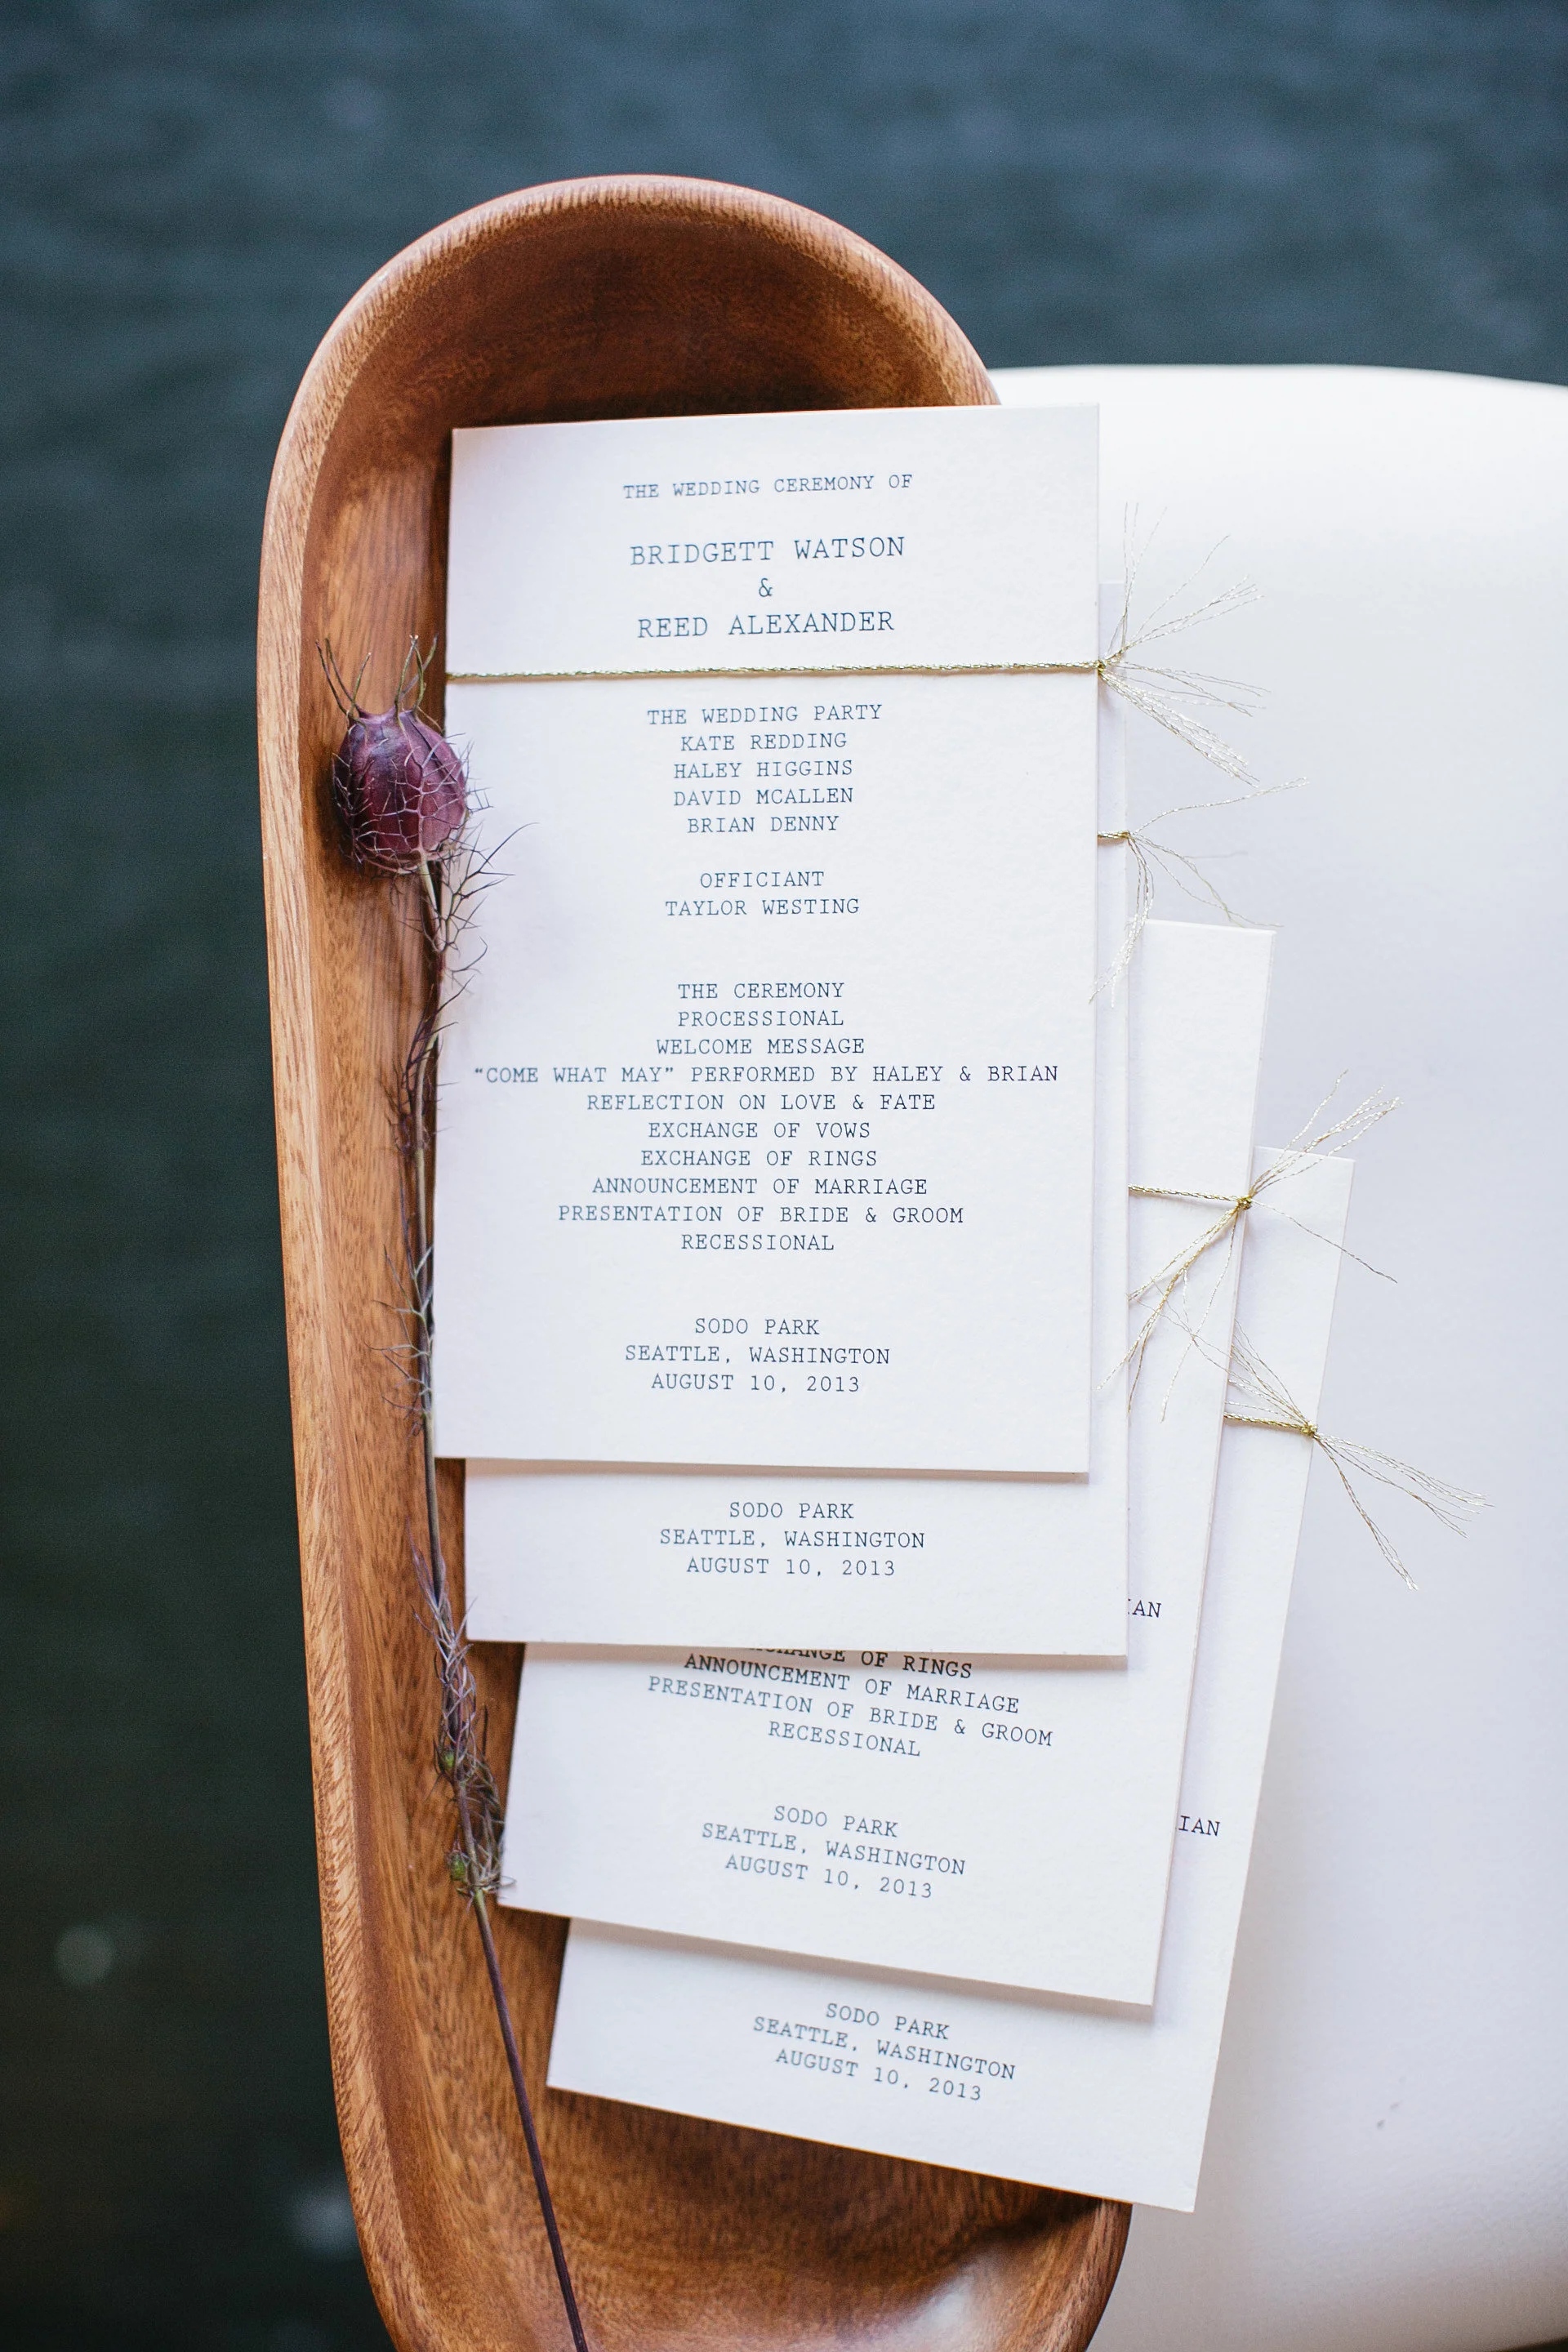 THE WEDDING CEREMONY OF
BRIDGETT WATSON
&
REED ALEXANDER
THE WEDDING PARTY
KATE REDDING
HALEY HIGGINS
DAVID MCALLEN
BRIAN DENNY
OFFICIANT
TAYLOR WESTING
THE CEREMONY
PROCESSIONAL
WELCOME MESSAGE
“COME WHAT MAY” PERFORMED BY HALEY & BRIAN
REFLECTION ON LOVE & FATE
EXCHANGE OF VOWS
EXCHANGE OF RINGS
ANNOUNCEMENT OF MARRIAGE
PRESENTATION OF BRIDE & GROOM
RECESSIONAL
SODO PARK
SEATTLE, WASHINGTON
AUGUST 10, 2013
SODO PARK
SEATTLE, WASHINGTON
AUGUST 10, 2013
IAN
OF RINGS
ANNOUNCEMENT OF MARRIAGE
PRESENTATION OF BRIDE & GROOM
RECESSIONAL
SODO PARK
SEATTLE, WASHINGTON
AUGUST 10, 2013
IAN
SODO PARK
SEATTLE, WASHINGTON
AUGUST 10, 2013